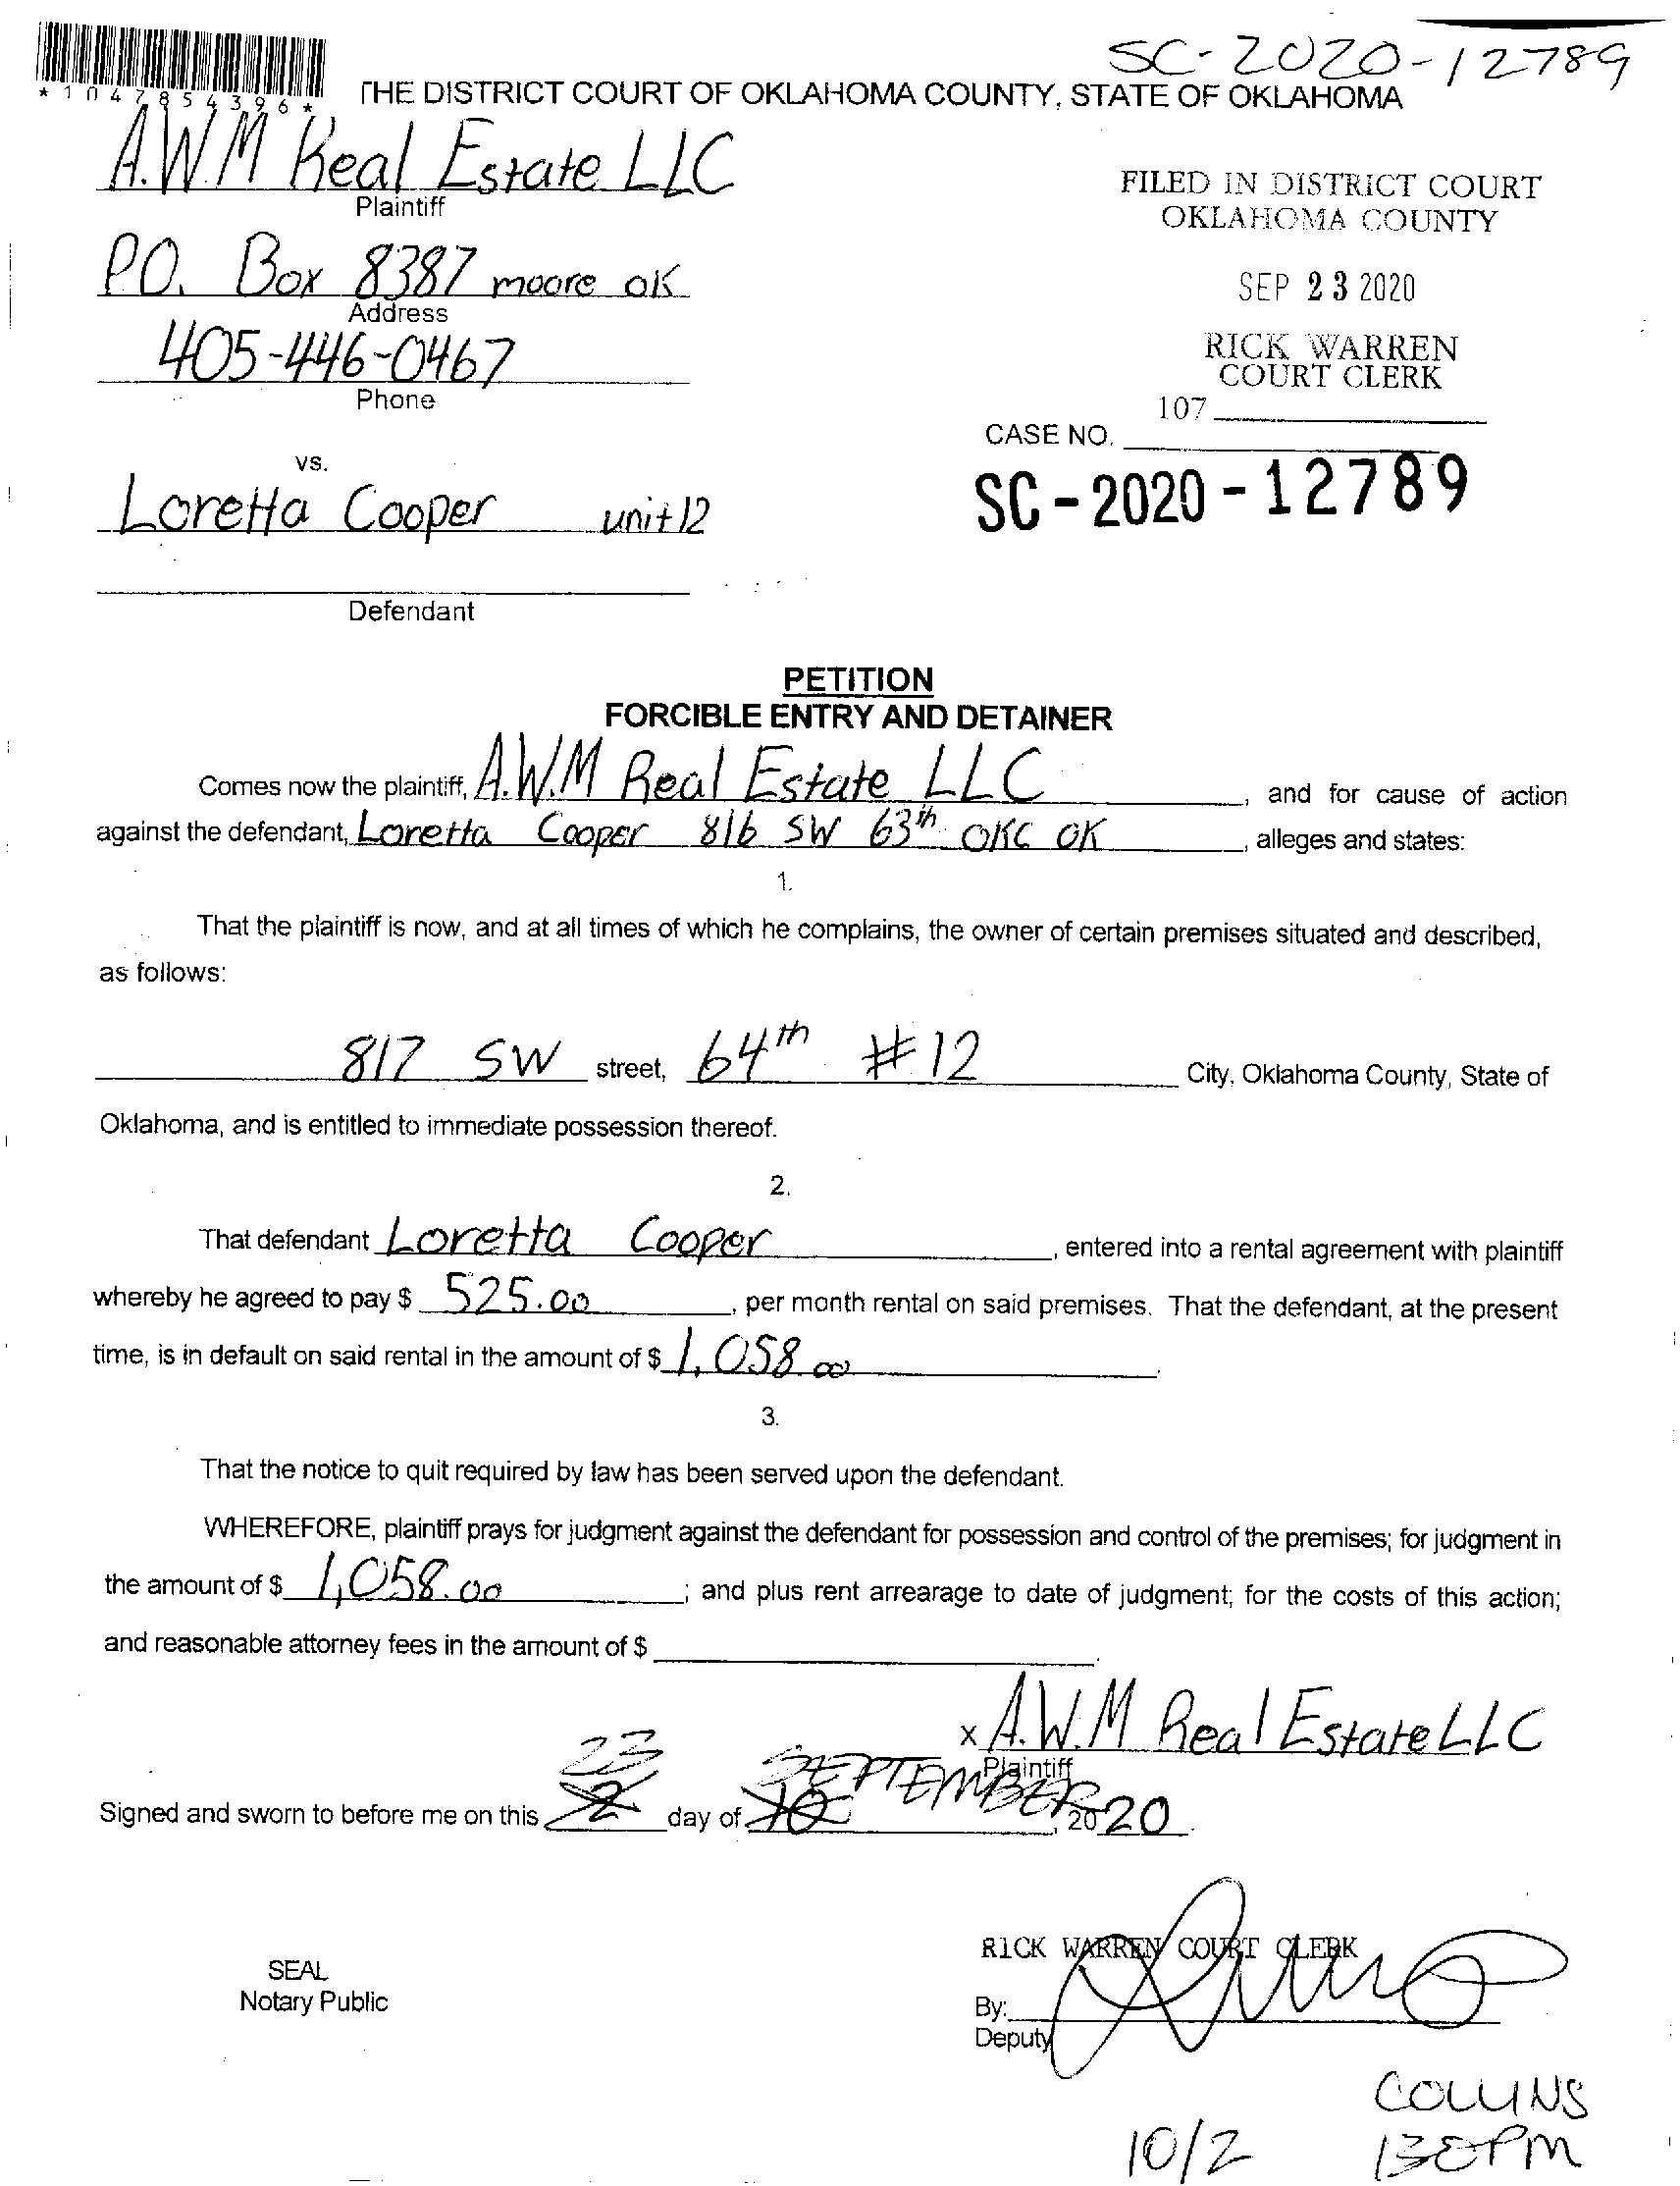 SC-2020-12789
*1047854396*
THE DISTRICT COURT OF OKLAHOMA COUNTY, STATE OF OKLAHOMA
A.W.M Real Estate LLC
Plaintiff
FILED IN DISTRICT COURT
OKLAHOMA COUNTY
P.O. Box 8387 moore OK
Address
SEP 23 2020
405-446-0467
Phone
RICK WARREN
COURT CLERK
107
CASE NO.
SC-2020-12789
vs.
Loretta Cooper unit 12
Defendant
PETITION
FORCIBLE ENTRY AND DETAINER
Comes now the plaintiff, A.W.M Real Estate LLC, and for cause of action
against the defendant, Loretta Cooper 816 SW 63th OKC OK, alleges and states:
1.
That the plaintiff is now, and at all times of which he complains, the owner of certain premises situated and described,
as follows:
817 SW street, 64th #12 City, Oklahoma County, State of
Oklahoma, and is entitled to immediate possession thereof.
2.
That defendant Loretta Cooper, entered into a rental agreement with plaintiff
whereby he agreed to pay $ 525.00, per month rental on said premises. That the defendant, at the present
time, is in default on said rental in the amount of $ 1,058.00.
3.
That the notice to quit required by law has been served upon the defendant.
WHEREFORE, plaintiff prays for judgment against the defendant for possession and control of the premises; for judgment in
the amount of $ 1,058.00; and plus rent arrearage to date of judgment; for the costs of this action;
and reasonable attorney fees in the amount of $ .
x A.W.M Real Estate LLC
Plaintiff
Signed and sworn to before me on this 23 day of SEPTEMBER, 2020.
RICK WARREN COURT CLERK
SEAL
Notary Public
By:
Deputy
COLLINS
10/2 130PM